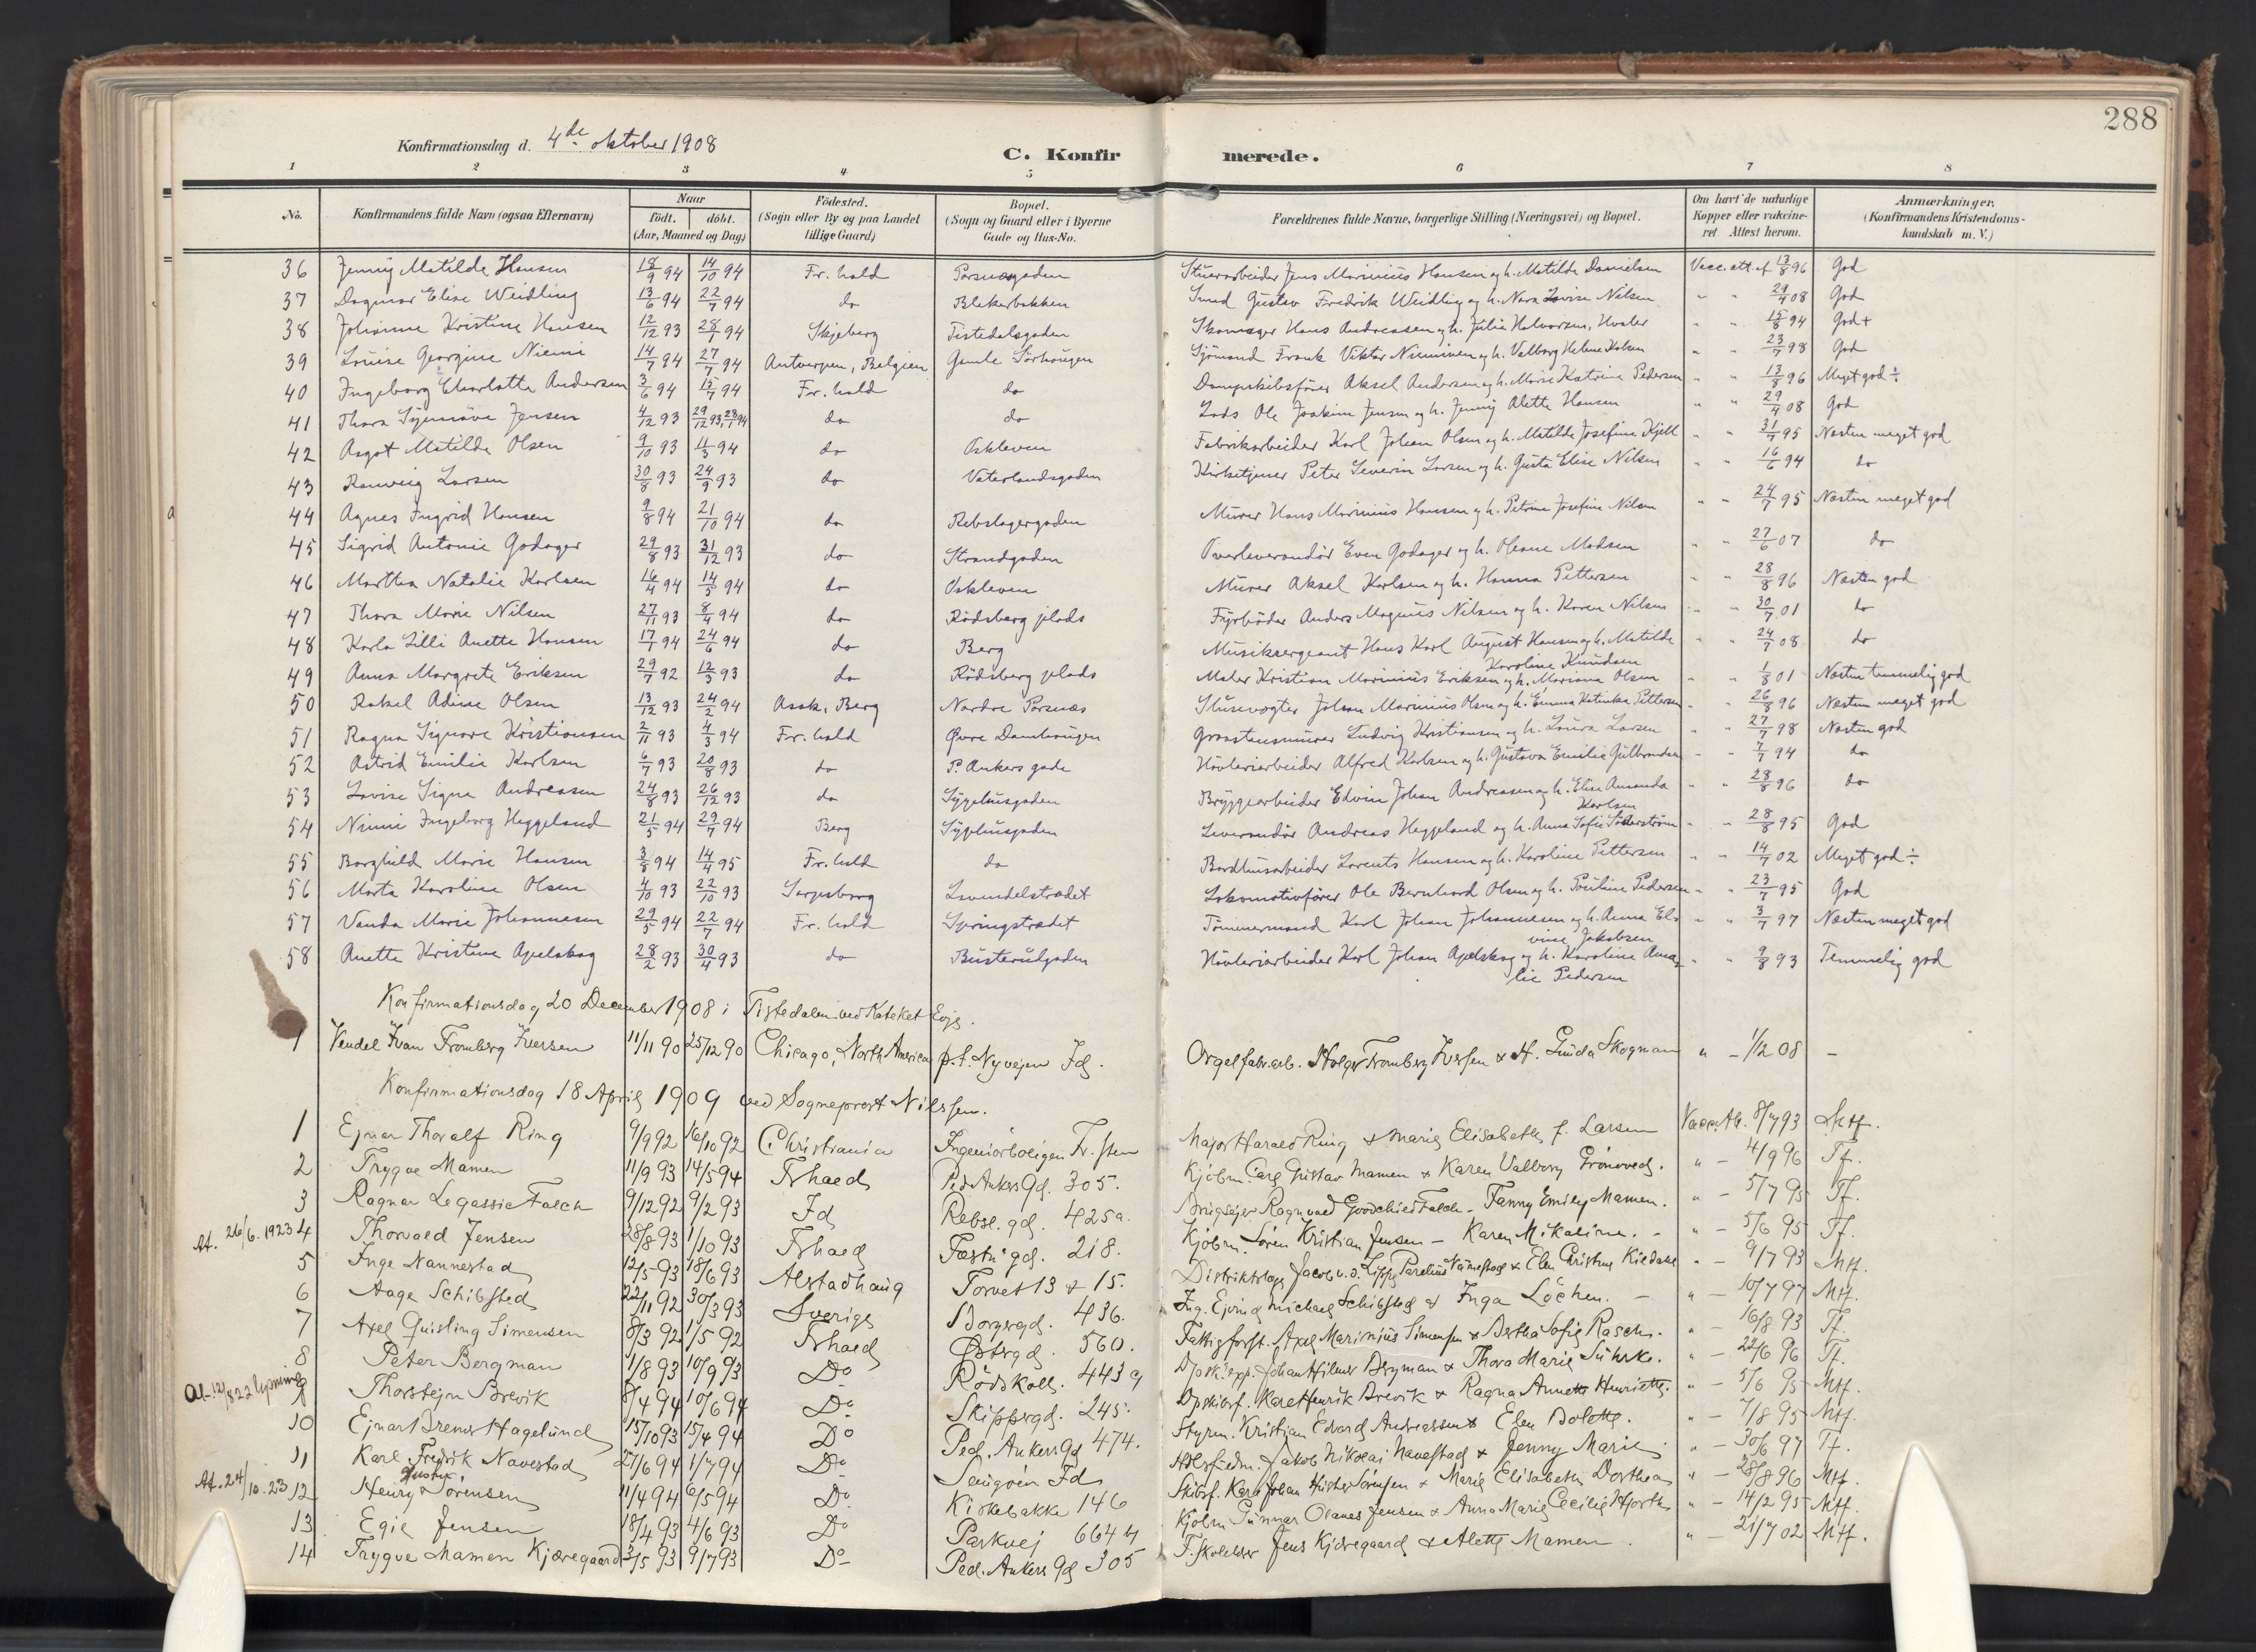 288
Konfirmationsdag d. 4de oktober 1908
C. Konfirmerede.
1 2 3 4 5 6 7 8
No. Konfirmandens fulde Navn (ogsaa Efternavn) Naar født. døbt. (Aar, Maaned og Dag) Fødested. (Sogn eller By og paa Landet tillige Gaard) Bopæl. (Sogn og Gaard eller i Byerne Gade og Hus-No. Forældrenes fulde Navne, borgerlige Stilling (Næringsvei) og Bopæl. Om havt de naturlige Kopper eller vakcineret Attest herom. Anmærkninger. (Konfirmandens Kristendomskundskab m. V.)
36 Jenny Matilde Hansen 18/9 94 14/10 94 Fr.hald Porsnesgaden Stuerarbeider Jens Marinius Hansen og h. Matilde Danielsen Vacc. att. af 13/8 96 God
37 Dagmar Elise Weidling 13/6 94 22/7 94 do Blekerbakken Smed Gustav Fredrik Weidling og h. Nora Lovise Nilsen " " 29/4 08 God
38 Johanne Kristine Hansen 12/12 93 28/1 94 Skjeberg Tistedalsgaden Skomager Hans Andreassen og h. Julie Halvorsen, Hvaler " " 15/8 94 God+
39 Louise Georgine Niemi 14/7 94 27/7 94 Antwerpen, Belgien Gamle Sørhougen Sjømand Frank Viktor Nieminen og h. Valborg Helene Kolsen " " 23/7 98 God
40 Ingeborg Charlotte Andersen 3/6 94 15/7 94 Fr.hald do Dampskibsfører Aksel Andersen og h. Marie Katrine Pedersen " " 13/8 96 Meget god ÷
41 Thora Synnøve Jensen 4/12 93 29/12 93, 28/1 94 do do Lods Ole Joakim Jensen og h. Jenny Alette Hansen " " 29/4 08 God
42 Aagot Matilde Olsen 9/10 93 4/3 94 do Oskleven Fabrikarbeider Karl Johan Olsen og h. Matilde Josefine Kjell " " 31/7 95 Næsten meget god
43 Ranveig Larsen 30/8 93 24/9 93 do Vaterlandsgaden Kirketjener Peter Severin Larsen og h. Gusta Elise Nilsen " " 16/6 94 do
44 Agnes Ingrid Hansen 9/8 94 21/10 94 do Rebslagergaden Murer Hans Marinius Hansen og h. Petrine Josefine Nilsen " " 24/7 95 Næsten meget god
45 Sigrid Antonie Godager 29/8 93 31/12 93 do Strandgaden Overleverandør Even Godager og h. Oleane Madsen " " 27/6 07 do
46 Martha Natalie Karlsen 16/4 94 14/5 94 do Oskleven Murer Aksel Karlsen og h. Hanna Pettersen " " 28/8 96 Næsten god
47 Thora Marie Nilsen 27/11 93 8/4 94 do Rødsberg plads Fyrbøder Anders Magnus Nilsen og h. Karen Nilsen " " 30/7 01 do
48 Karla Lilli Anette Hansen 17/1 94 24/6 94 do Berg Musiksergeant Hans Karl August Hansen og h. Matilde Karoline Knudsen " " 24/7 08 do
49 Anna Margrete Eriksen 29/7 92 12/3 93 do Rødsberg plads Maler Kristian Marinius Eriksen og h. Mariane Olsen " " 1/8 01 Næsten temmelig god
50 Rakel Adine Olsen 13/12 93 24/2 94 Asak, Berg Nordre Porsnæs Slusevogter Johan Marinius Olsen og h. Emma Katinka Pettersen " " 26/8 96 Næsten meget god
51 Ragna Signore Kristiansen 2/11 93 4/3 94 Fr.hald Øvre Damhaugen Graastensmurer Ludvig Kristiansen og h. Laura Larsen " " 27/7 98 Næsten god
52 Astrid Emilie Karlsen 6/7 93 20/8 93 do P. Ankers gade Høvleriarbeider Alfred Karlsen og h. Gustava Emilie Gulbrandsen " " 7/7 94 do
53 Lovise Signe Andreasen 24/8 93 26/12 93 do Sygehusgaden Bryggearbeider Edvin Johan Andreasen og h. Elise Amanda Karlsen " " 28/8 96 do
54 Ninni Ingeborg Heggeland 21/5 94 29/7 94 Berg Sygehusgaden Leverandør Andreas Heggeland og h. Anna Sofie Söderström " " 28/8 95 God
55 Borghild Marie Hansen 3/8 94 14/4 95 Fr.hald do Bordhusarbeider Lorents Hansen og h. Karoline Pettersen " " 14/7 02 Meget god ÷
56 Marta Karoline Olsen 4/10 93 22/10 93 Sarpsborg Lavendelstrædet Lokomotivfører Ole Bernhard Olsen og h. Pauline Pedersen " " 23/7 95 God
57 Vanda Marie Johannesen 29/5 94 22/7 94 Fr.hald Springstrædet Tømmermand Karl Johan Johannesen og h. Anna Elvine Jakobsen " " 3/7 97 Næsten meget god
58 Anette Kristine Apelskog 28/2 93 30/4 93 do Busterudgaden Høvleriarbeider Karl Johan Apelskog og h. Karoline Amalie Pedersen " " 9/8 93 Temmelig god
Konfirmationsdag 20 December 1908 i Tistedalen ved Kateket Evje.
1 Vendel Ivan Fromberg Iversen 11/11 90 25/12 90 Chicago, North America p.t. Nyvejen Id. Orgelfabr.arb. Holger Fromberg Iversen & H. Gunda Skogman " - 1/12 08 -
Konfirmationsdag 18 April 1909 ved Sogneprest Nilssen.
1 Ejnar Thoralf Ring 9/9 92 16/10 92 Christiania Ingeniørboligen Fr.sten Major Harald Ring & Marie Elisabeth f. Larsen Vacc.At. 8/7 93 Mtf.
2 Trygve Mamen 11/9 93 14/5 94 Frhald Ped Ankers Gd. 305. Kjøbm. Carl Gustav Mamen & Karen Valborg Grønvold. " - 4/9 96 Tf.
3 Ragnar Legassie Falch 9/12 92 9/2 93 Id Rebsl.gd. 425a. Brugsejer Ragnvald Goodchild Falch - Fanny Emily Mamen. " - 5/7 95 Tf.
At. 26/6. 1923 4 Thorvald Jensen 28/8 93 1/10 93 Frhald Fæstn.gd. 218. Kjøbm. Søren Kristian Jensen - Karen Mikaline. - " - 5/6 95 Tf.
5 Inge Nannestad 12/5 93 18/6 93 Alstadhaug Torvet 13 & 15. Distriktslæge Jacob v.d. Lippe Parelius Nannestad & Elen Christine Kildahl " - 9/7 93 Mtf.
6 Aage Schibsted 22/11 92 30/3 93 Sverige Borgergd. 436. Ing. Ejvind Michael Schibsted & Inga Löchen. - " - 10/7 97 Mtf.
7 Axel Quisling Simensen 8/3 92 1/5 92 Frhald Østergd. 560. Fattigforst. Axel Marinius Simensen & Bertha Sofie Rasch. " - 16/8 93 Tf.
8 Peter Bergman 1/8 93 10/9 93 Do Rødskoll. 443 a Dpsk.exp. Johan Hilmer Bergman & Thora Marie Suhrke. " - 22/6 96 Tf.
At. 12/8 22 lysning 9 Thorstejn Brevik 8/4 94 10/6 94 Do Skippergd. 245. Dpskibsf. Karl Henrik Brevik & Ragna Annette Henriette. " - 5/6 95 Mtf.
10 Ejnar Brems Hagelund 15/10 93 15/4 94 Do Ped. Ankers Gd 474. Styrm. Kristian Edvard Andreassen & Elen Bolette. " - 7/8 95 Mtf.
11 Karl Fredrik Navestad 27/6 94 1/7 94 Do Id Jakob Nikolai Navestad & Jenny Marie " - 30/6 97 Tf.
At. 24/10. 23 12 Henry Gustav Sørensen 11/4 94 6/5 94 Do Kirkebakke 146 Skibsf. Karl Johan Gustav Sørensen & Marie Elisabeth Dorthea " - 28/8 96 Mtf.
13 Egil Jensen 18/4 93 4/6 93 Do Parkvej 664 b Kjøbm Gunnar Olaves Jensen & Anna Marie Cecilie Hjorth " - 14/2 95 Mtf.
14 Trygve Mamen Kjæregaard 3/5 93 9/7 93 Do Ped. Ankers Gd 305 F.skolelær Jens Kjæregaard & Alette Mamen. " - 21/7 02 Mtf.